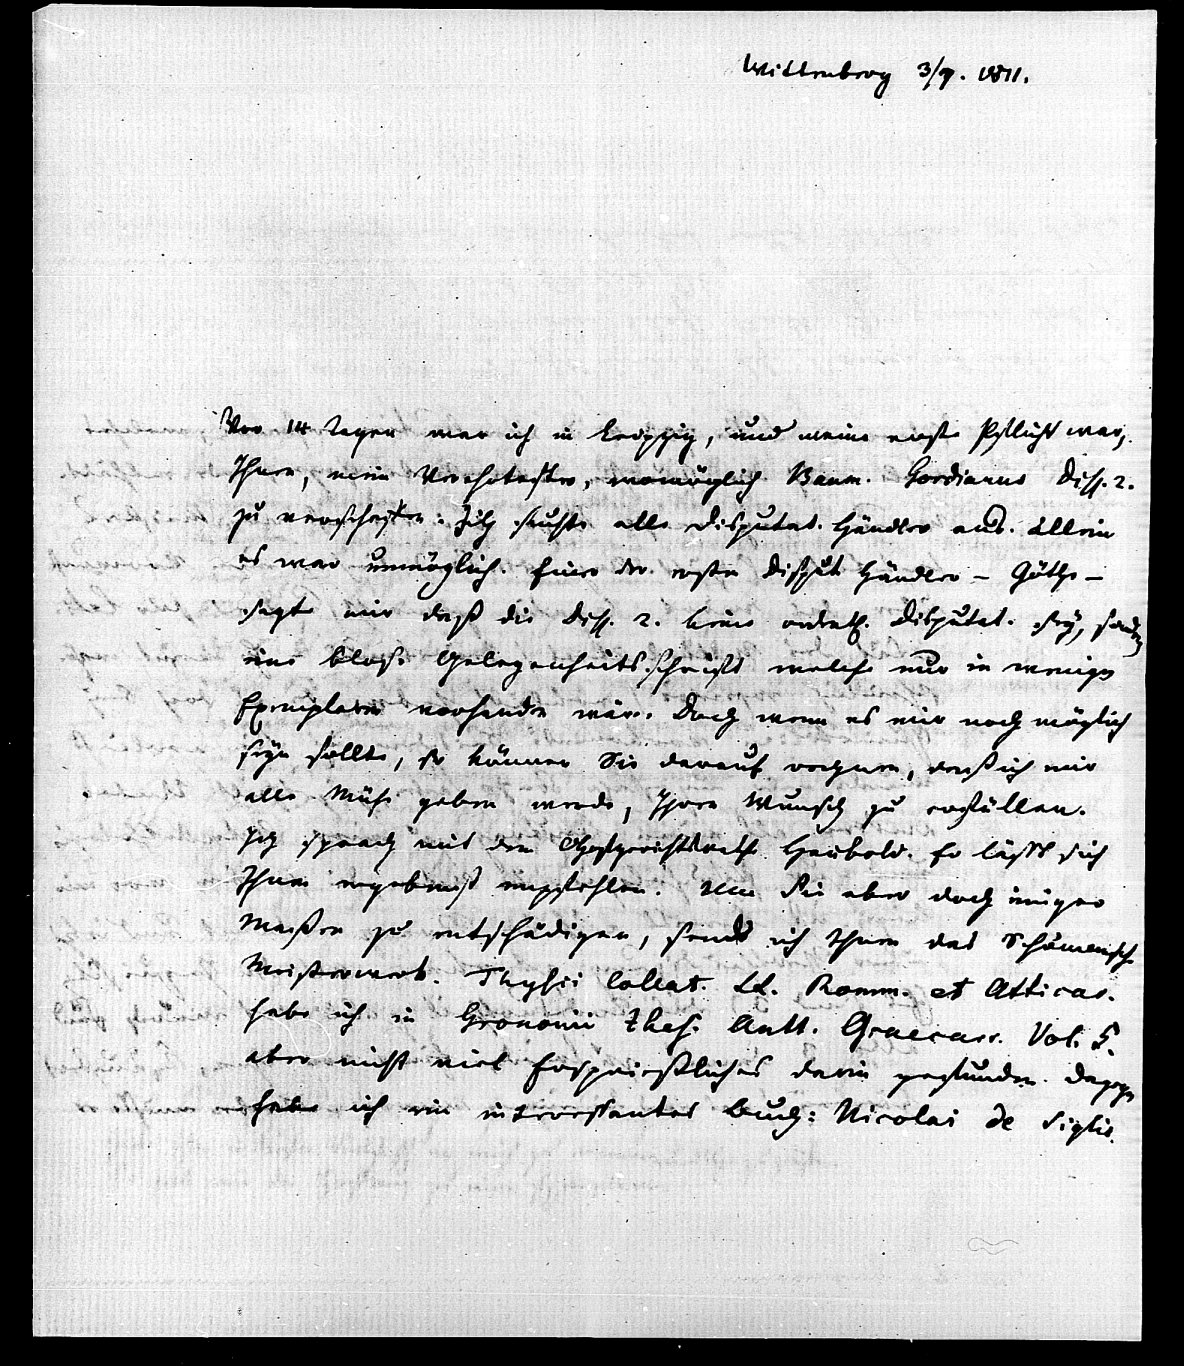 Wittenberg 3/9. 1811.
Vor 14 Tagen war ich in Leipzig, und meine erste Pflicht war,
Ihnen, mein Verehrtester, womöglich Baum. Gordianus Diss. 2.
zu verschaffen. Ich suchte alle Disputat. Händler aus. Allein
es war unmöglich. Einer der ersten Disput Händler – Göthe –
sagte mir daß die Diss. 2. keine ordentl. Disputat. sey, sondern
eine blose Gelegenheitsschrift welche nur in wenigen
Exemplaren vorhanden wäre. Doch wenn es mir noch möglich
seyn sollte, so können Sie darauf rechnen, daß ich mir
alle Mühe geben werde, Ihren Wunsch zu erfüllen.
Ich sprach mit dem Ohofgerichtsrath Haubold. Er läßt sich
Ihnen ergebenst empfehlen. Um Sie aber doch einiger
Maßen zu entschädigen, sende ich Ihnen das
Meisterwerk. Thysii Collat. LL. Romm. et Atticar.
habe ich in Gronovii Thes. Antt. Graecarr. Vol. 5.
aber nicht viel Ersprießliches darin gefunden. Dagegen
habe ich ein interessantes Buch: Nicolai de Siglis.